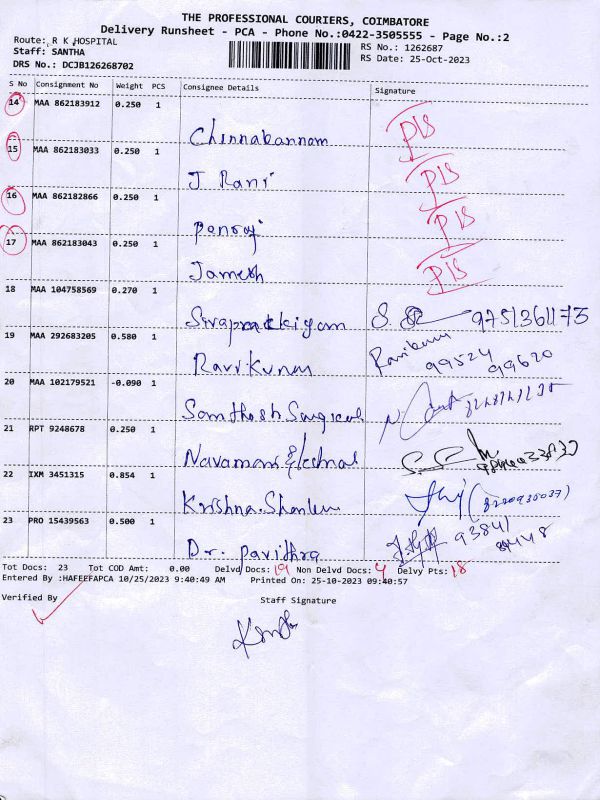 THE PROFESSIONAL COURIERS, COIMBATORE
Delivery Runsheet - PCA - Phone No.:0422-3505555 - Page No.:2
Route: R K HOSPITAL
Staff: SANTHA
RS No.: 1262687
RS Date: 25-Oct-2023
DRS No.: DCJB126268702
S No Consignment No Weight PCS Consignee Details Signature
14 MAA 862183912 0.250 1
Chinnakannam PIS
15 MAA 862183033 0.250 1
J Rani PIS
16 MAA 862182866 0.250 1
Panraj PIS
17 MAA 862183043 0.250 1
Jamesh PIS
18 MAA 104758569 0.270 1
Sivaprakkigam S. 9751361173
19 MAA 292683205 0.580 1
Ravi Kumar 99524 99620
20 MAA 102179521 -0.090 1
Santhosh Surgical
21 RPT 9248678 0.250 1
Navamani
22 IXM 3451315 0.854 1
Krishna.
23 PRO 15439563 0.500 1
Dr. Pavithra 93841
Tot Docs: 23 Tot COD Amt: 0.00 Delvd Docs: 19 Non Delvd Docs: 4 Delvy Pts: 18
Entered By :HAFEEFAPCA 10/25/2023 9:40:49 AM Printed On: 25-10-2023 09:40:57
Verified By Staff Signature